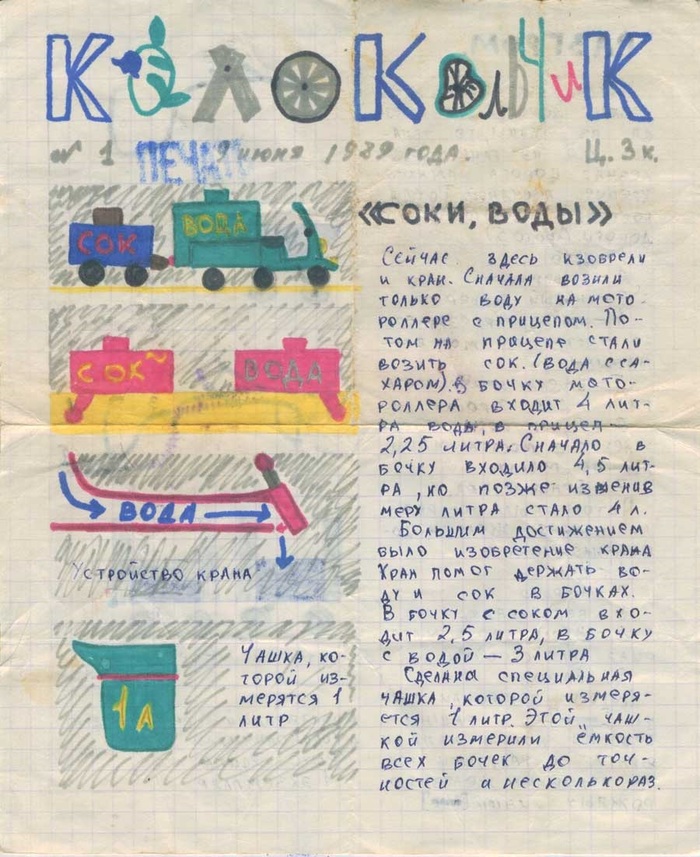 КОЛОКОЛЬЧИК
№ 1 ПЕЧАТ 9 июня 1989 года. Ц. 3 к.
СОК
ВОДА
СОК
ВОДА
ВОДА
Устройство крана
1 л
Чашка, ко-
торой из-
мерятся 1
литр
«СОКИ, ВОДЫ»
Сейчас здесь изобрели
и кран. Сначала возили
только воду на мото-
роллере с прицепом. По-
том на прицепе стали
возить сок. (Вода сса-
харом). В бочку мото-
роллера входит 4 лит-
ра воды, в прицеп -
2,25 литра. Сначало в
бочку входило 4,5 лит-
ра, но позже изменив
меру литра стало 4 л.
Большим достижением
было изобретение крана
Кран помог держать во-
ду и сок в бочках.
В бочку с соком вхо-
дит 2,5 литра, в бочку
с водой — 3 литра
Сделана специальная
чашка, которой измеря-
ется 1 литр. Этой чаш-
кой измерили ёмкость
всех бочек до точ-
ностей и несколькораз.